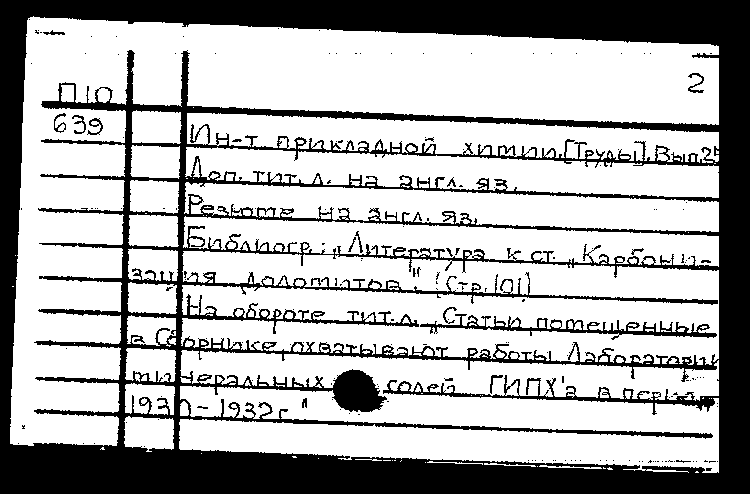 2
П10
639
Ин-т прикладной химии.[Труды].Вып.25
Доп. тит. л. на англ. яз.
Резюме на англ. яз.
Библиогр.: „Литература к ст. „Карбони-
зация доломитов". (Стр. 101)
На обороте тит.л. „Статьи, помещенные
в Сборнике, охватывают работы Лаборатории
минеральных солей ГИПХ'а в период
1930-1932г."